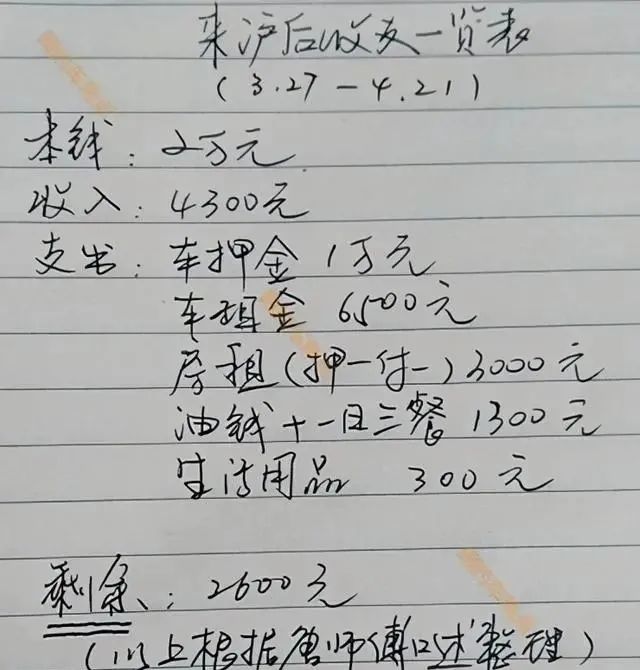 来沪后收支一览表
(3.27-4.21)
本钱：2万元
收入：4300元
支出：车押金 1万元
车租金 6500元
房租(押一付一)3000元
油钱+一日三餐 1300元
生活用品 300元
剩余：2600元
(以上根据詹师傅口述整理)